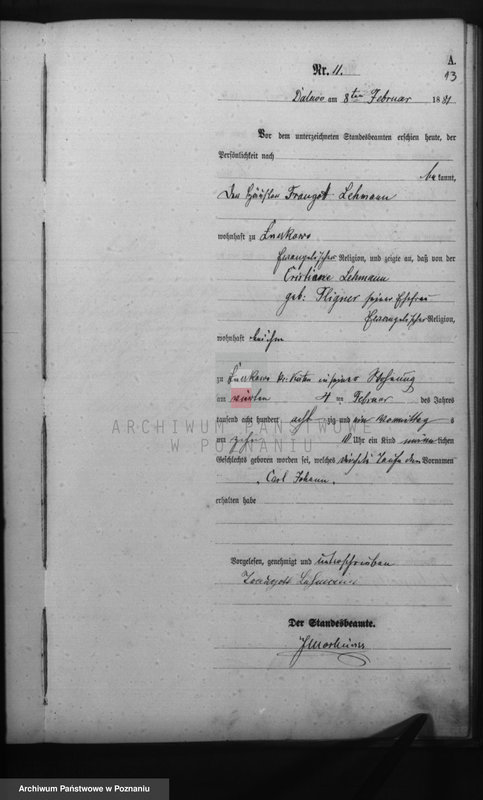 A.
13
Nr. 11.
am 8ten Februar 1881
Vor dem unterzeichneten Standesbeamten erschien heute, der
Persönlichkeit nach
kannt,
Lehmann
wohnhaft zu
Evangelischer Religion, und zeigte an, daß von der
Lehmann
geb: seiner Ehefrau
Evangelischer Religion,
wohnhaft bei ihm
zu in seiner Wohnung
am vierten 4 ten Februar des Jahres
tausend acht hundert acht zig und ein vormittag s
um zehn 10 Uhr ein Kind männlichen
Geschlechts geboren worden sei, welches Taufe den Vornamen
Carl Johann
erhalten habe
ARCHIWUM PAŃSTWOWE
W POZNANIU
Vorgelesen, genehmigt und unterschrieben
Lehmann
Der Standesbeamte.
Archiwum Państwowe w Poznaniu